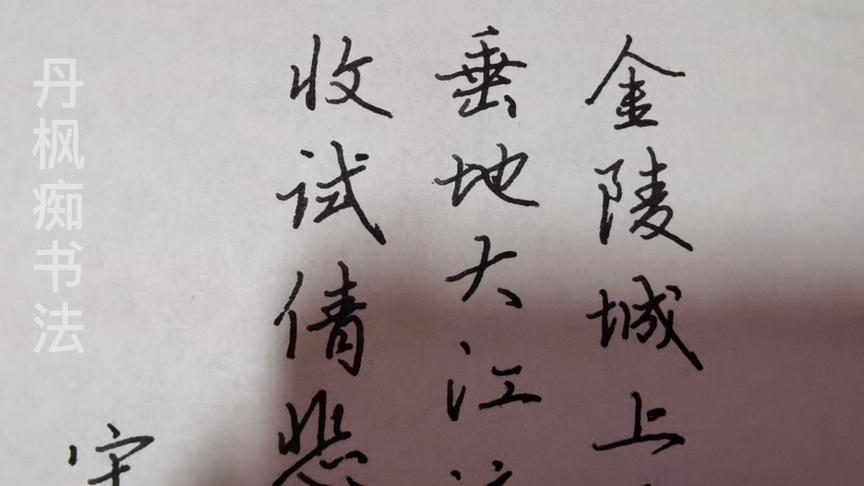 金陵城上
垂地大江
收试倩悲
宋
丹枫痴书法